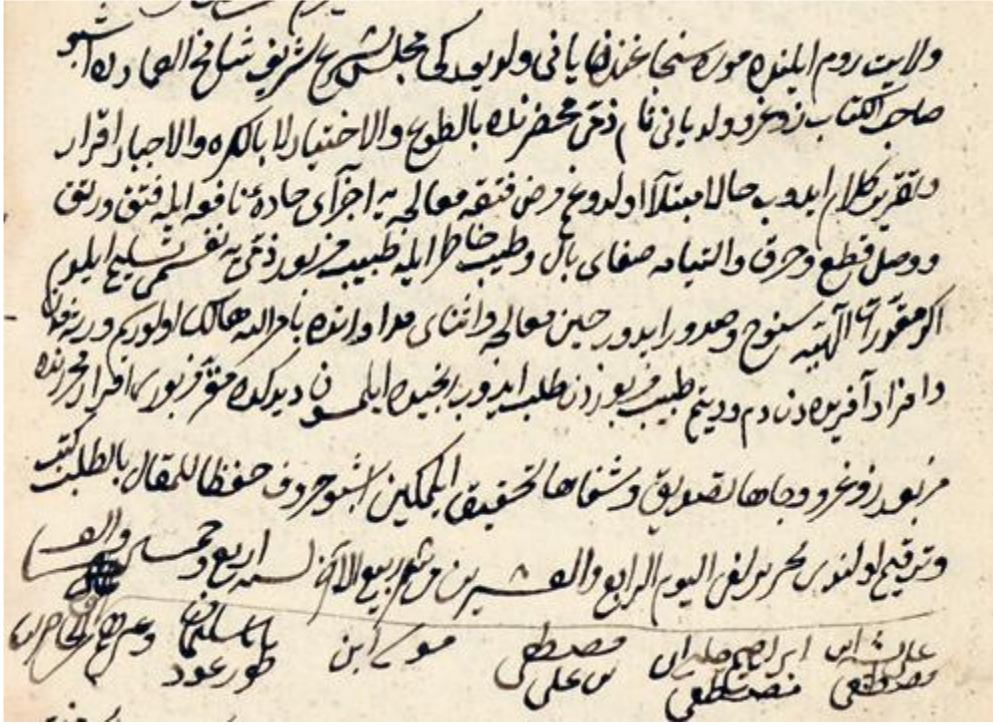 ولايت روم ايلنده موره سنجاغنده يانى ولد مجلس شرع شريف شامخ العمادده اشبو
صاحب الكتاب زوغرو ولد يانى نام ذمى محضرنده بالطوع والاختيار لا بالكره والاجبار اقرار
وتقرير كلام ايدوب حالا مبتلا اولدوغم مرض فتقه معالجه يه اجراى ايله فتق ورتق
ووصل قطع وخرق والتيامه صفاى بال وطيب خاطر ايله طبيب مزبور ذمى يه نفسمى تسليم ايلدم
اكر مقدورات الهيه سنوح وصدور ايدرر حين معالجه واثناى مداواتده بامر الله هالك اولورسم ورثه مدن
وافراد آفريده دن دم وديتم طبيب مزبوردن طلب ايدوب رنجيده ايلمسون ديدكده مقر مزبورك اقرار محررنده
مزبور زوغرو وجاها تصديق وشفاها تحقيق ايلمكين اشبو حروف حفظا للمقال بالطلب كتب
وترقيم اولندى تحريرا فى اليوم الرابع والعشرين من شهر ربيع الآخر لسنه اربع وخمسين والف
على بن ابراهيم چلبى ابن مصطفى موسى ابن بابا سليمان وغيرهم من الحاضرين
مصطفى مصطفى بن على طورعود